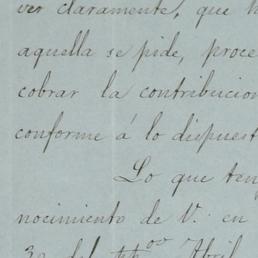 ver claramente, que
aquella se pide, proce
cobrar la contribucion
conforme á lo dispuest
Lo que ten
nocimiento de V. en
30 del Abril